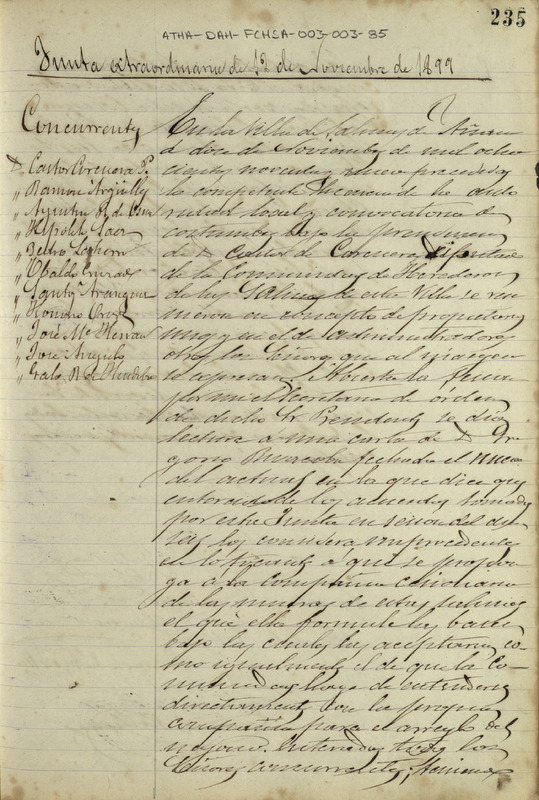 235
ATHA-DAH-FCHSA-003-003-85
Junta extraordinaria de 12 de Noviembre de 1899
Concurrentes
D. Castor Corcuera P.
" Ramon Argüelles
" Agustin
" Hipolito Saez
" Pedro
" Ubaldo
" Aranguiz
" Orozco
" José Mª Herran
" José Angulo
" Galo
En la Villa de Salinas de Añana
á doce de Noviembre de mil ocho
cientos noventa y nueve precedida
la competente licencia de la auto
ridad local y convocatoria de
costumbre bajo la presidencia
de D. Castor de Corcuera Diputado
de la Comunidad de Herederos
de las Salinas de esta Villa se reu
nieron en concepto de propietarios
unos y en el de administradores
otros los Señores que al margen
se expresan. Abierta la sesion
por mi el Secretario de orden
de dicho Sr Presidente se dio
lectura a una carta de D. Gre
gorio fechada el nueve
del actual en la que dice que
enterado de los acuerdos tomados
por esta Junta en sesion del
los considera improcedentes
en lo tocante a que se propon
ga a la Compañia
de las minas de estas salinas
el que ella formule las bases
bajo las cuales las aceptaria co-
mo igualmente el de que la Co-
munidad haya de entenderse
directamente con la propia
compañia para el arreglo del
negocio. Enterados todos los
Señores concurrentes,